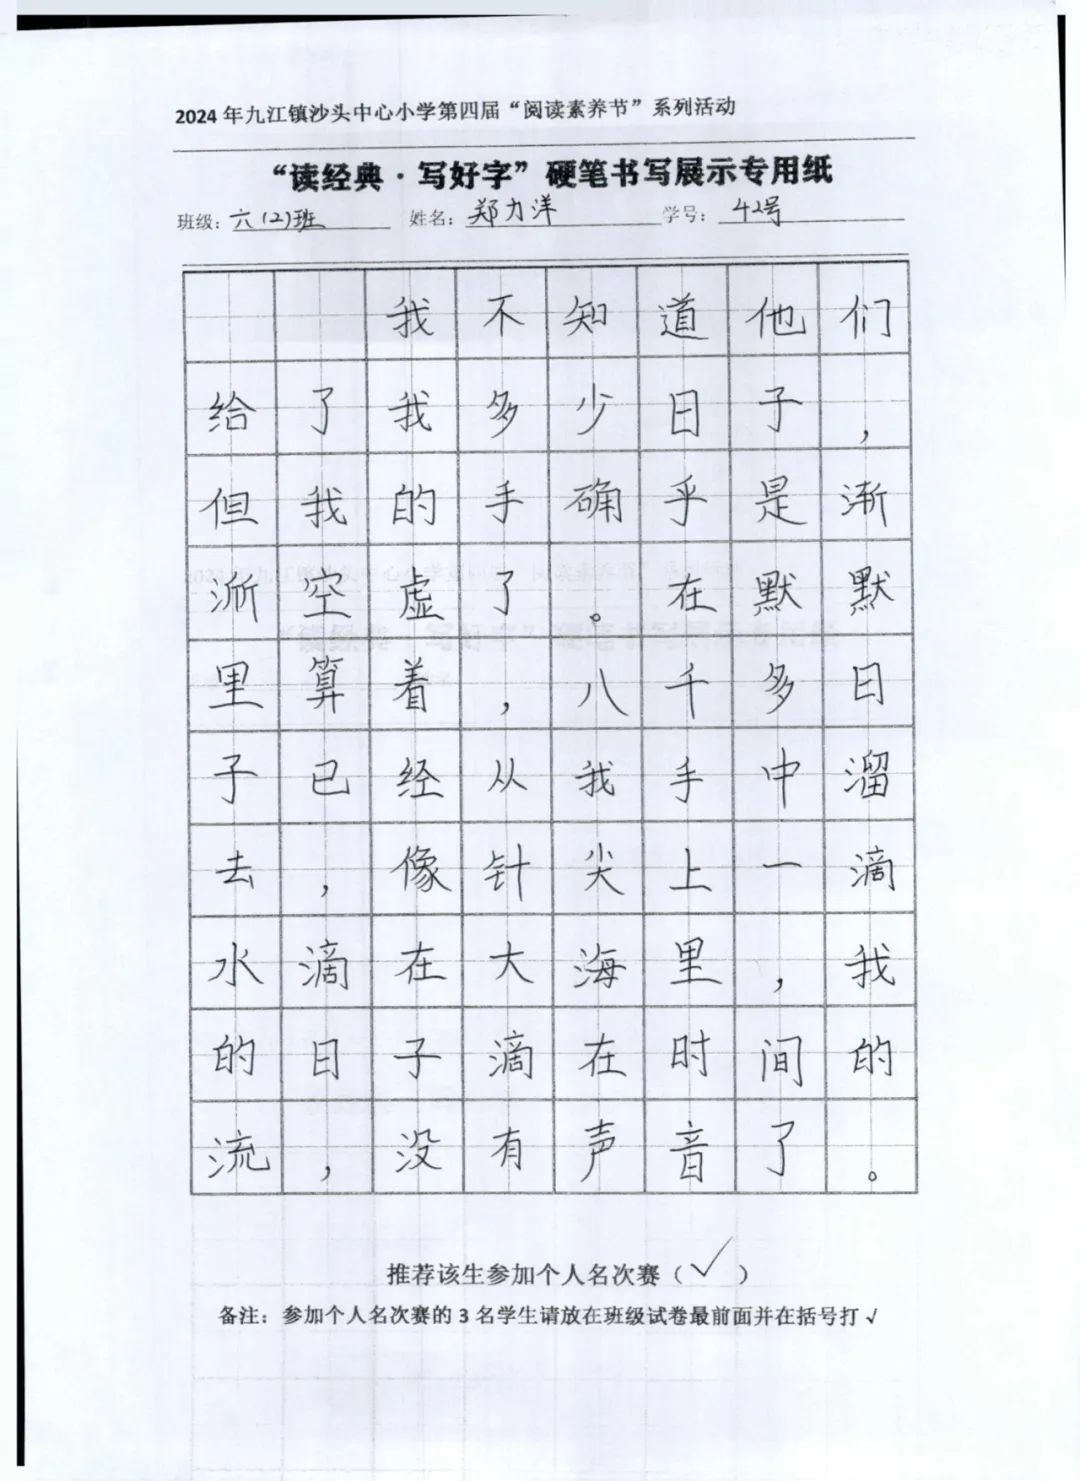 2024年九江镇沙头中心小学第四届“阅读素养节”系列活动
“读经典·写好字”硬笔书写展示专用纸
班级：六(2)班 姓名：郑力洋 学号：42号
我不知道他们
给了我多少日子，
但我的手确乎是渐
渐空虚了。在默默
里算着，八千多日
子已经从我手中溜
去，像针尖上一滴
水滴在大海里，我
的日子滴在时间的
流，没有声音了。
推荐该生参加个人名次赛（√）
备注：参加个人名次赛的3名学生请放在班级试卷最前面并在括号打√